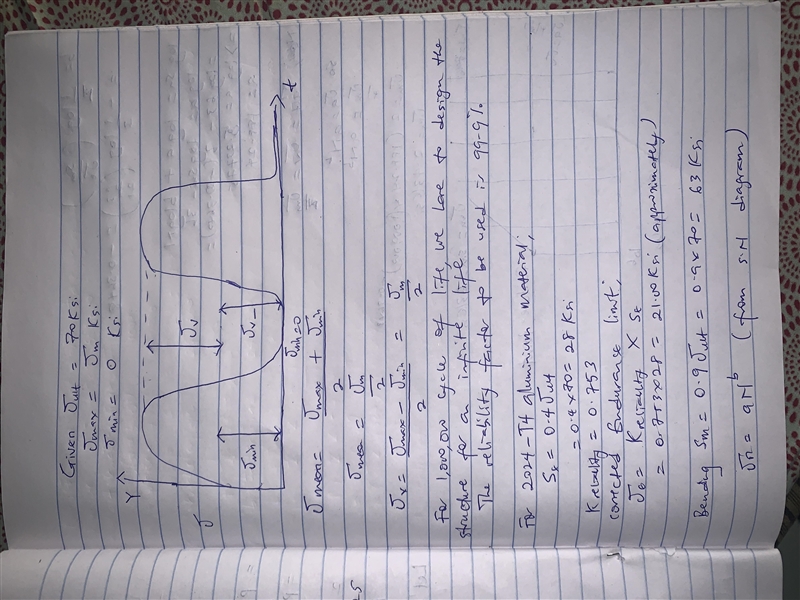 Given σult = 70 Ksi
σmax = σm Ksi
σmin = 0 Ksi
Y
σ
σmin
σv
σv
t
σmin=0
σmean = σmax + σmin / 2
σmean = σm / 2
σv = σmax - σmin / 2 = σm / 2
For 1,000,000 cycle of life, we have to design the
structure for an infinite life.
The reliability factor to be used is 99.9%
For 2024-T4 aluminium material,
Se = 0.4 σult
= 0.4 x 70 = 28 Ksi
K reliability = 0.753
corrected Endurance limit,
σe = K reliability x Se
= 0.753 x 28 = 21.00 Ksi (approximately)
Bending Sm = 0.9 σult = 0.9 x 70 = 63 Ksi
σn = aN^b (from S-N diagram)